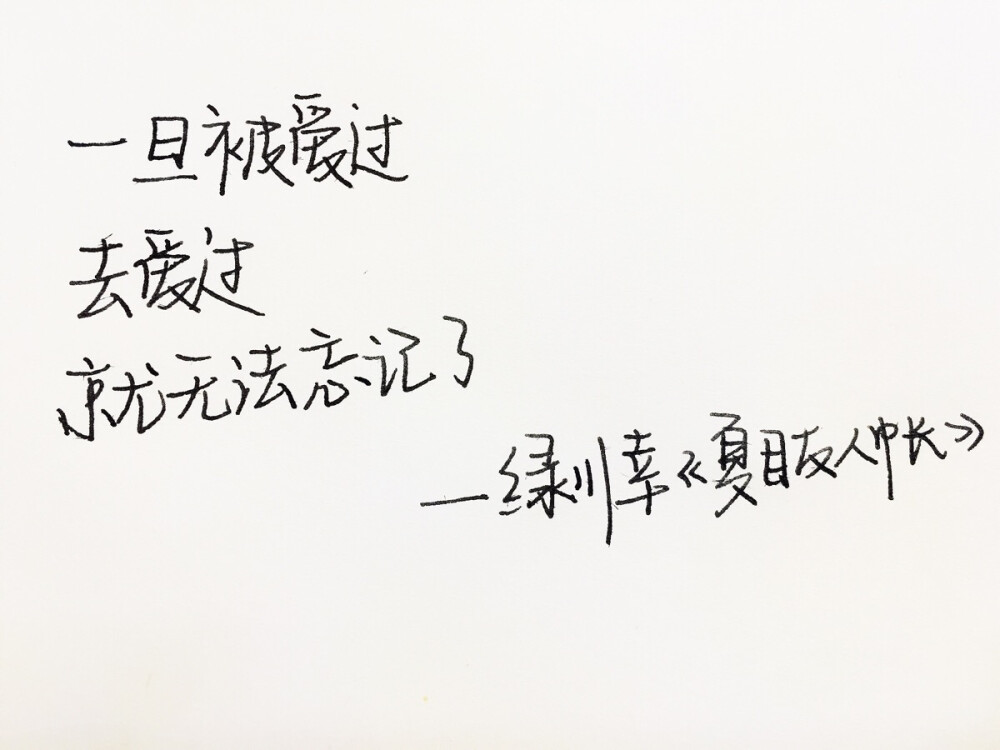 一旦被爱过
去爱过
就无法忘记了
—绿川幸《夏目友人帐》